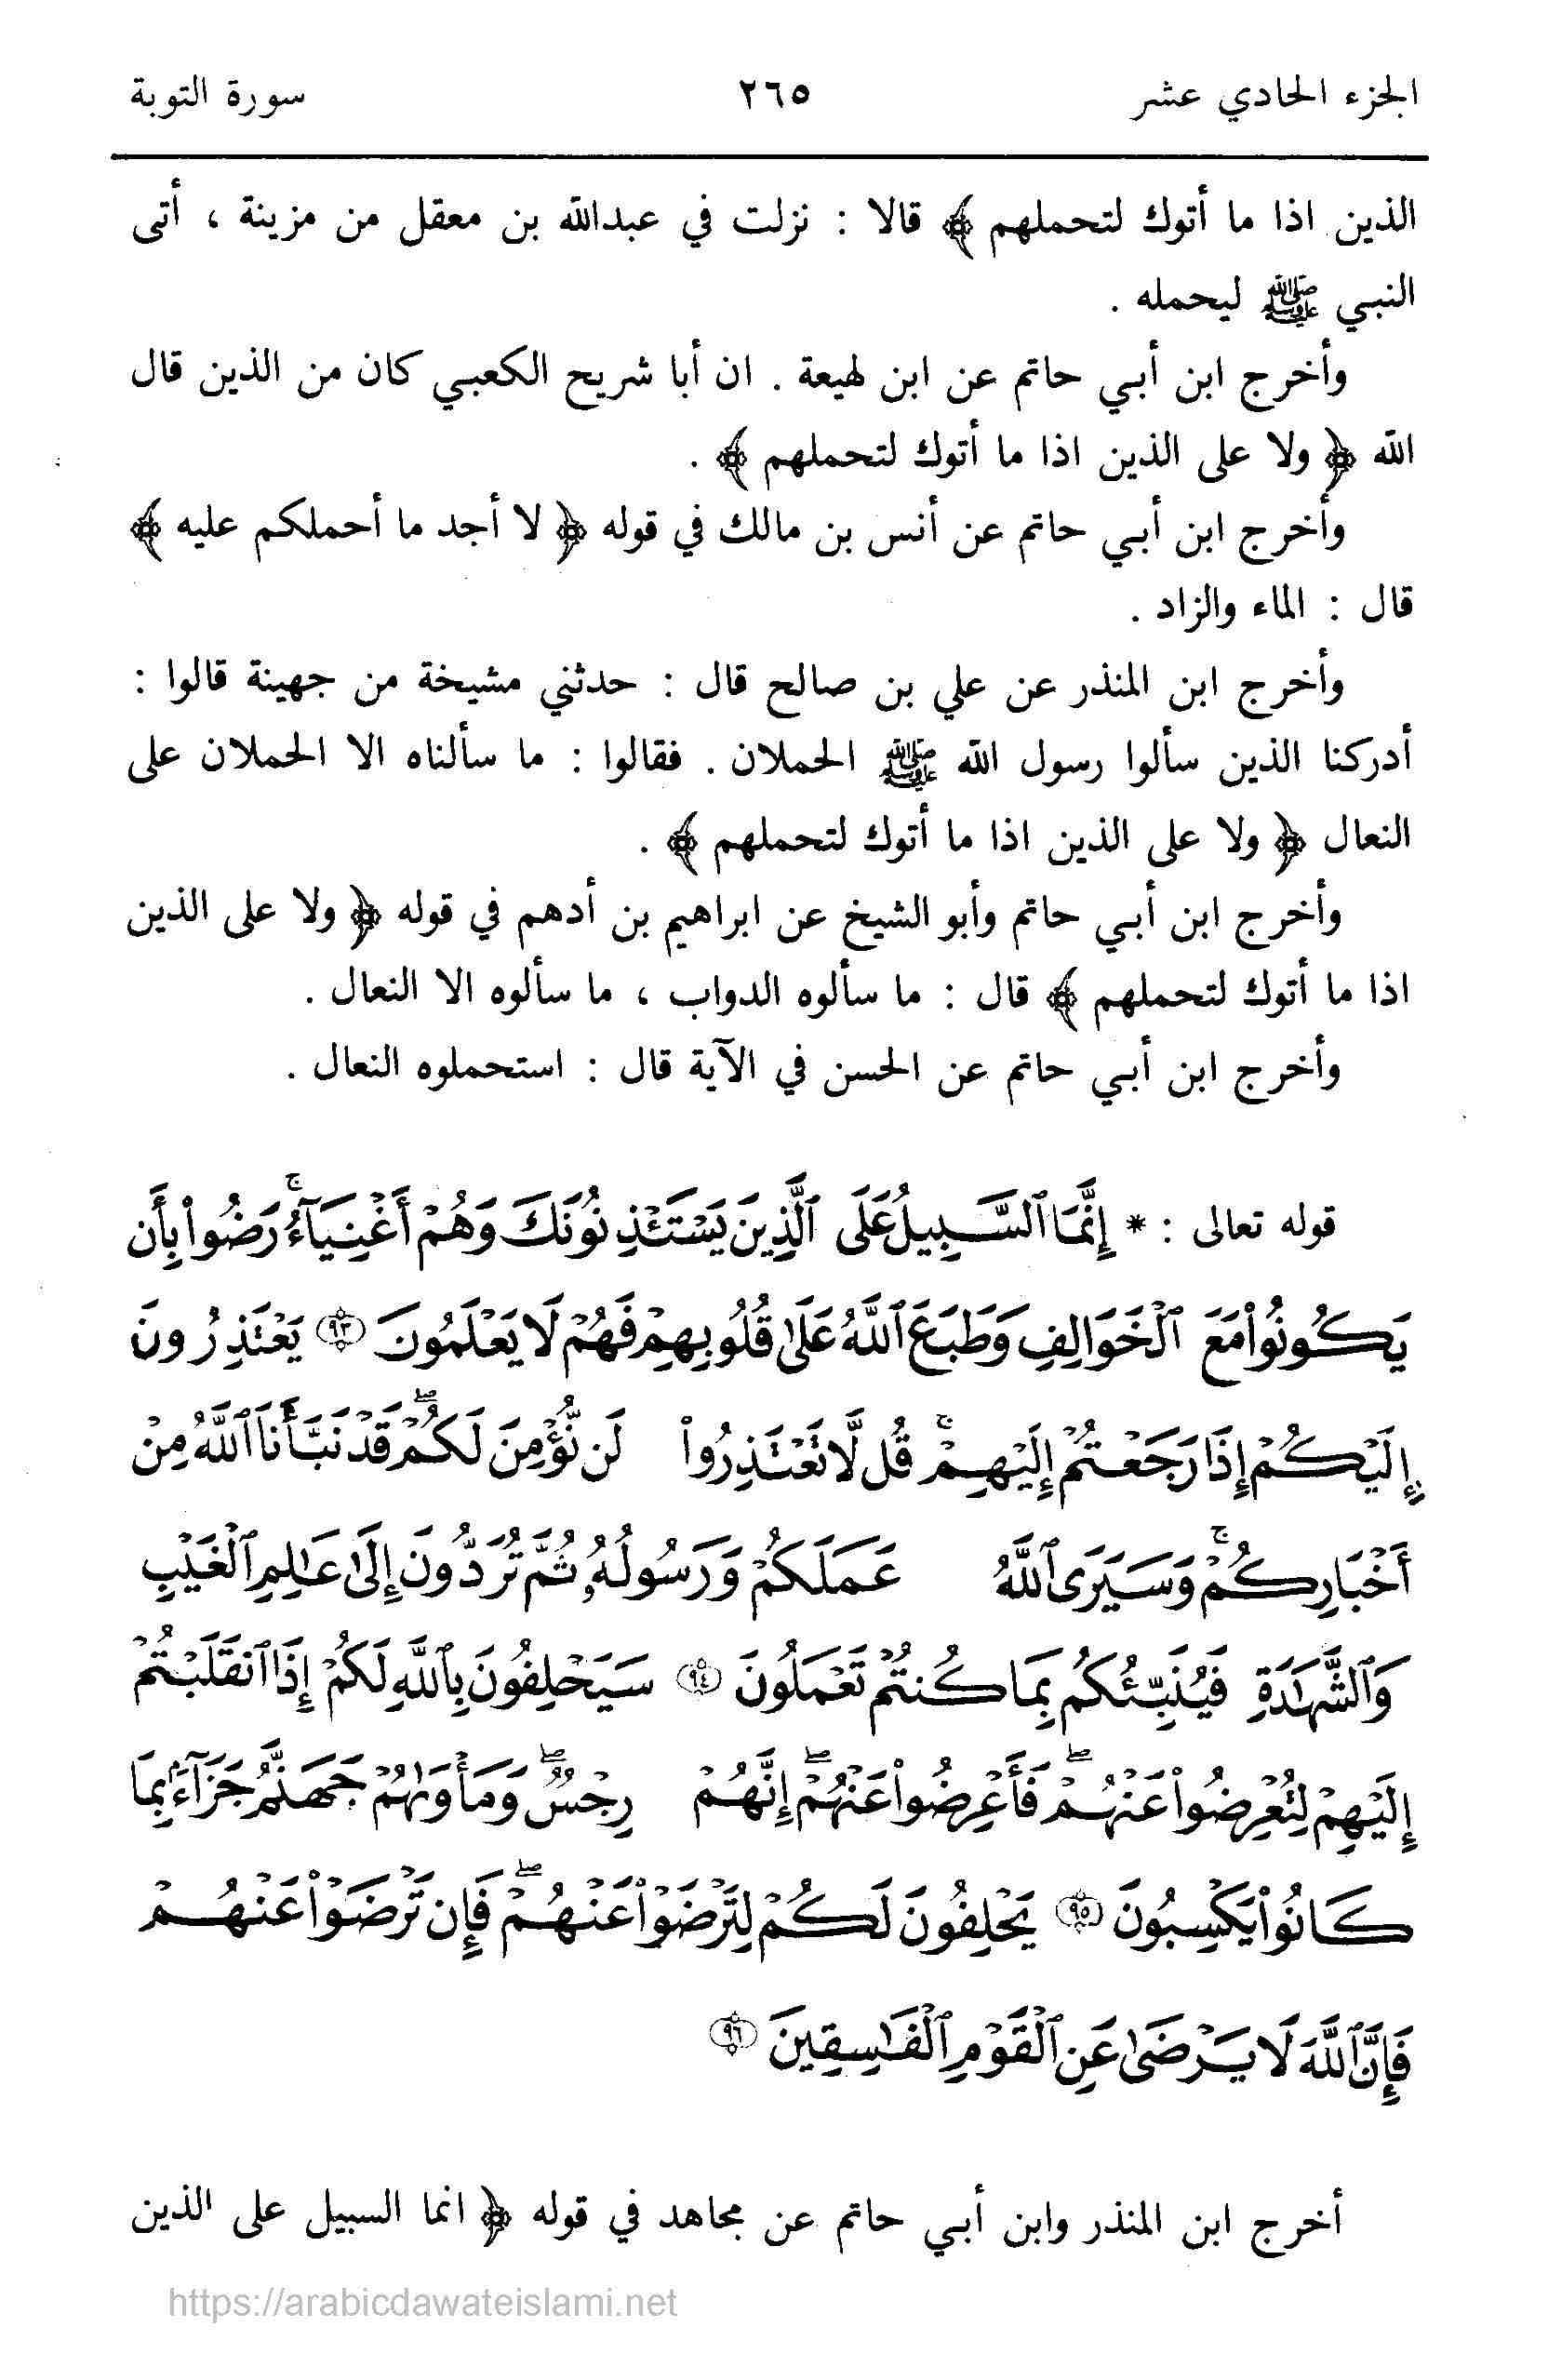 الجزء الحادي عشر ٢٦٥ سورة التوبة
الذين اذا ما أتوك لتحملهم ﴾ قالا : نزلت في عبدالله بن معقل من مزينة ، أتى
النبي ﷺ ليحمله .
وأخرج ابن أبي حاتم عن ابن لهيعة . ان أبا شريح الكعبي كان من الذين قال
الله ﴿ ولا على الذين اذا ما أتوك لتحملهم ﴾ .
وأخرج ابن أبي حاتم عن أنس بن مالك في قوله ﴿ لا أجد ما أحملكم عليه ﴾
قال : الماء والزاد .
وأخرج ابن المنذر عن علي بن صالح قال : حدثني مشيخة من جهينة قالوا :
أدركنا الذين سألوا رسول الله ﷺ الحملان . فقالوا : ما سألناه الا الحملان على
النعال ﴿ ولا على الذين اذا ما أتوك لتحملهم ﴾ .
وأخرج ابن أبي حاتم وأبو الشيخ عن ابراهيم بن أدهم في قوله ﴿ ولا على الذين
اذا ما أتوك لتحملهم ﴾ قال : ما سألوه الدواب ، ما سألوه الا النعال .
وأخرج ابن أبي حاتم عن الحسن في الآية قال : استحملوه النعال .
قوله تعالى : * إِنَّمَا ٱلسَّبِيلُ عَلَى ٱلَّذِينَ يَسْتَـْٔذِنُونَكَ وَهُمْ أَغْنِيَآءُ ۚ رَضُوا۟ بِأَن
يَكُونُوا۟ مَعَ ٱلْخَوَالِفِ وَطَبَعَ ٱللَّهُ عَلَىٰ قُلُوبِهِمْ فَهُمْ لَا يَعْلَمُونَ ﴿٩٣﴾ يَعْتَذِرُونَ
إِلَيْكُمْ إِذَا رَجَعْتُمْ إِلَيْهِمْ ۚ قُل لَّا تَعْتَذِرُوا۟ لَن نُّؤْمِنَ لَكُمْ ۖ قَدْ نَبَّأَنَا ٱللَّهُ مِنْ
أَخْبَارِكُمْ ۚ وَسَيَرَى ٱللَّهُ عَمَلَكُمْ وَرَسُولُهُۥ ثُمَّ تُرَدُّونَ إِلَىٰ عَـٰلِمِ ٱلْغَيْبِ
وَٱلشَّهَـٰدَةِ فَيُنَبِّئُكُم بِمَا كُنتُمْ تَعْمَلُونَ ﴿٩٤﴾ سَيَحْلِفُونَ بِٱللَّهِ لَكُمْ إِذَا ٱنقَلَبْتُمْ
إِلَيْهِمْ لِتُعْرِضُوا۟ عَنْهُمْ ۖ فَأَعْرِضُوا۟ عَنْهُمْ ۖ إِنَّهُمْ رِجْسٌ ۖ وَمَأْوَىٰهُمْ جَهَنَّمُ جَزَآءًۢ بِمَا
كَانُوا۟ يَكْسِبُونَ ﴿٩٥﴾ يَحْلِفُونَ لَكُمْ لِتَرْضَوْا۟ عَنْهُمْ ۖ فَإِن تَرْضَوْا۟ عَنْهُمْ
فَإِنَّ ٱللَّهَ لَا يَرْضَىٰ عَنِ ٱلْقَوْمِ ٱلْفَـٰسِقِينَ ﴿٩٦﴾
أخرج ابن المنذر وابن أبي حاتم عن مجاهد في قوله ﴿ انما السبيل على الذين
https://arabicdawateislami.net